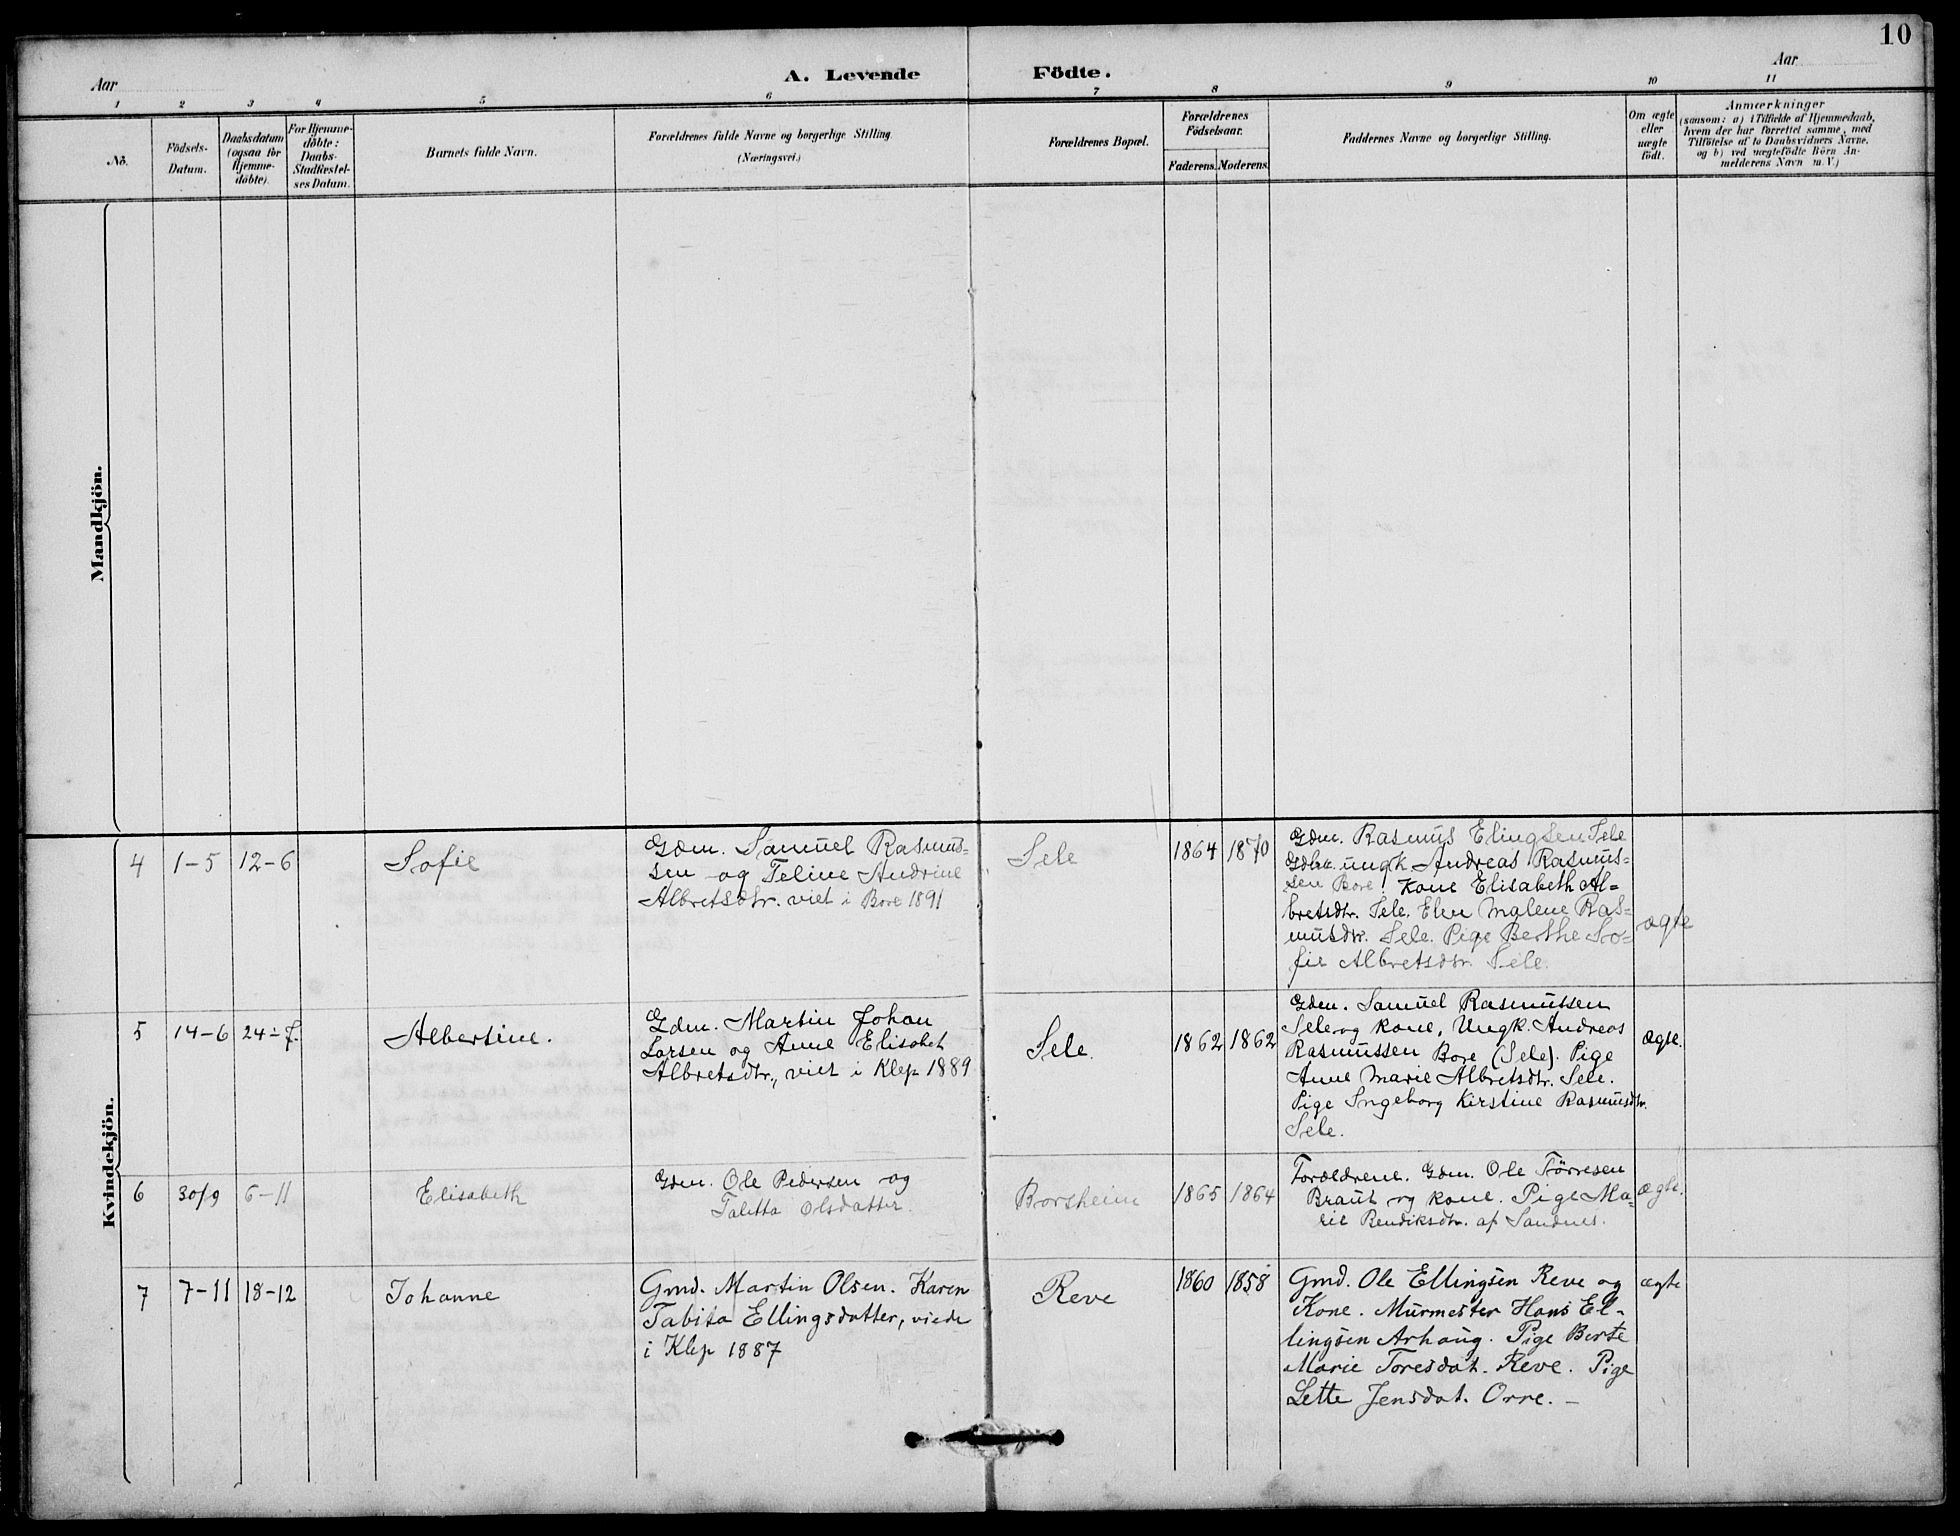 10
Aar
A. Levende Födte.
Aar
1 2 3 4 5 6 7 8 9 10 11
No.
Födsels-
Datum.
Daabsdatum
(ogsaa for
Hjemme-
döbte).
For Hjemme-
döbte:
Daabs-
Stadfæstel-
ses Datum.
Barnets fulde Navn.
Forældrenes fulde Navne og borgerlige Stilling.
(Næringsvei.)
Forældrenes Bopæl.
Forældrenes
Födselsaar.
Faderens. Moderens.
Faddernes Navne og borgerlige Stilling.
Om ægte
eller
uægte
födt.
Anmærkninger
(saasom: a) i Tilfælde af Hjemmedaab,
hvem der har forrettet samme, med
Tilföielse af to Daabsvidners Navne,
og b) ved uægtefödte Börn An-
melderens Navn m. V.)
Mandkjön.
Kvindekjön.
4 1-5 12-6 Sofie
Gdm. Samuel Rasmus-
sen og Teline Andrine
Albretsdtr. viet i Bore 1891
Sele
1864 1870
Gdm. Rasmus Elingsen Sele
ungk. Andreas Rasmus-
sen Bore. Kone Elisabeth Al-
bretsdtr. Sele. Elen Malene Ras-
musdtr. Sele. Pige Berthe So-
fie Albretsdtr. Sele.
ægte
5 14-6 24-7. Albertine.
Gdm. Martin Johan
Larsen og Anne Elisabet
Albretsdtr., viet i Klep 1889
Sele.
1862 1862
Gdm. Samuel Rasmussen
Sele og kone, Ungk. Andreas
Rasmussen Bore (Sele). Pige
Anne Marie Albretsdtr. Sele.
Pige Ingeborg Kirstine Rasmusdtr.
Sele.
ægte.
6 30/9 6-11 Elisabeth
Gdm. Ole Pedersen og
Taletta Olsdatter.
Borsheim
1865 1864
Forældrene. Gdm. Ole Törresen
Braut og kone. Pige Ma-
rie Bendiksdtr. af Sandnes.
ægte.
7 7-11 18-12 Johanne
Gmd. Martin Olsen. Karen
Tabita Ellingsdatter, viede
i Klep 1887
Reve
1860 1858
Gmd. Ole Ellingsen Reve og
Kone. Murmester Hans El-
lingsen Arhaug. Pige Berte
Marie Toresdat. Reve. Pige
Lette Jensdat. Orre. -
ægte